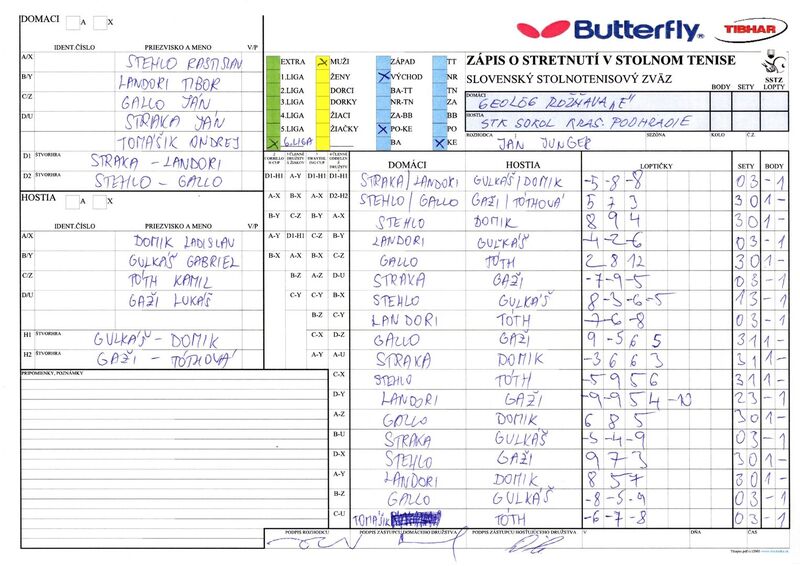 DOMÁCI A X
IDENT.ČÍSLO PRIEZVISKO A MENO V/P
A/X STEHLO RASTISLAV
B/Y LANDORI TIBOR
C/Z GALLO JÁN
D/U STRAKA JÁN
TOMAŠIK ANDREJ
D1 ŠTVORHRA STRAKA - LANDORI
D2 ŠTVORHRA STEHLO - GALLO
HOSTIA A X
IDENT.ČÍSLO PRIEZVISKO A MENO V/P
A/X DOMIK LADISLAV
B/Y GULKÁŠ GABRIEL
C/Z TÓTH KAMIL
D/U GAŽI LUKÁŠ
H1 ŠTVORHRA GULKÁŠ - DOMIK
H2 ŠTVORHRA GAŽI - TÓTHOVÁ
PRIPOMIENKY, POZNÁMKY
Butterfly
TIBHAR
EXTRA MUŽI ZÁPAD TT
1.LIGA ŽENY VÝCHOD NR
2.LIGA DORCI BA-TT TN
3.LIGA DORKY NR-TN ZA
4.LIGA ŽIACI ZA-BB BB
5.LIGA ŽIAČKY PO-KE PO
6.LIGA BA KE
ZÁPIS O STRETNUTÍ V STOLNOM TENISE
SLOVENSKÝ STOLNOTENISOVÝ ZVÄZ
SSTZ
BODY SETY LOPTY
DOMÁCI GEOLÓG ROŽŇAVA „E"
HOSTIA STK SOKOL KRAS. PODHRADIE
ROZHODCA JÁN JUNGER SEZÓNA KOLO Č.Z.
DOMÁCI HOSTIA LOPTIČKY SETY BODY
D1-H1 A-Y D1-H1 D1-H1 STRAKA/LANDORI GULKÁŠ/DOMIK -5 -8 -8 03 -1
A-X B-X A-X D2-H2 STEHLO/GALLO GAŽI/TÓTHOVÁ 5 7 3 30 1-
B-Y C-Z B-Y A-X STEHLO DOMIK 8 9 4 30 1-
A-Y D1-H1 C-Z B-Y LANDORI GULKÁŠ -4 -2 -6 03 -1
B-X A-X B-X C-Z GALLO TÓTH 2 8 12 30 1-
B-Z A-Z D-U STRAKA GAŽI -7 -9 -5 03 -1
C-Y C-Y B-X STEHLO GULKÁŠ 8 -3 -6 -5 13 -1
B-Z C-Y LANDORI TÓTH -7 -6 -8 03 -1
C-X D-Z GALLO GAŽI 9 -5 6 5 31 1-
A-Y A-U STRAKA DOMIK -3 6 6 3 31 1-
C-X STEHLO TÓTH -5 9 5 6 31 1-
D-Y LANDORI GAŽI -9 -9 5 4 -10 23 -1
A-Z GALLO DOMIK 6 8 5 30 1-
B-U STRAKA GULKÁŠ -5 -4 -9 03 -1
D-X STEHLO GAŽI 9 7 3 30 1-
A-Y LANDORI DOMIK 8 5 7 30 1-
B-Z GALLO GULKÁŠ -8 -5 -9 03 -1
C-U TOMAŠIK TÓTH -6 -7 -8 03 -1
PODPIS ROZHODCU PODPIS ZÁSTUPCU DOMÁCEHO DRUŽSTVA PODPIS ZÁSTUPCU HOSŤUJÚCEHO DRUŽSTVA V DŇA ČAS